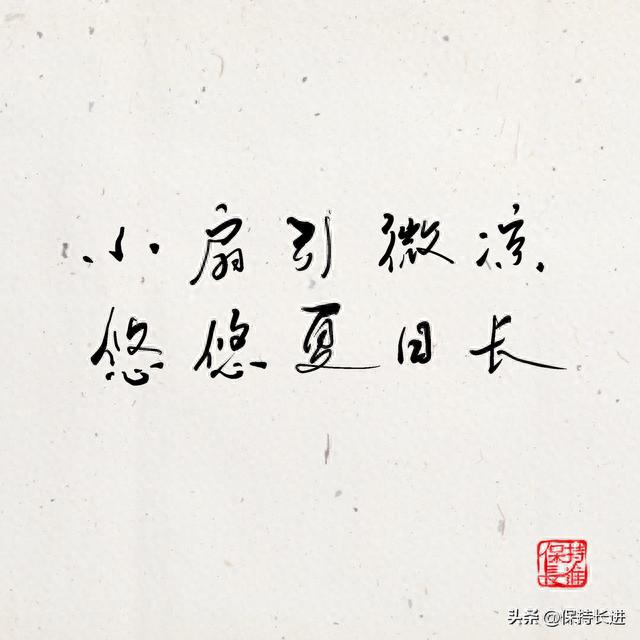 小扇引微凉
悠悠夏日长
保持長進
头条 @保持长进